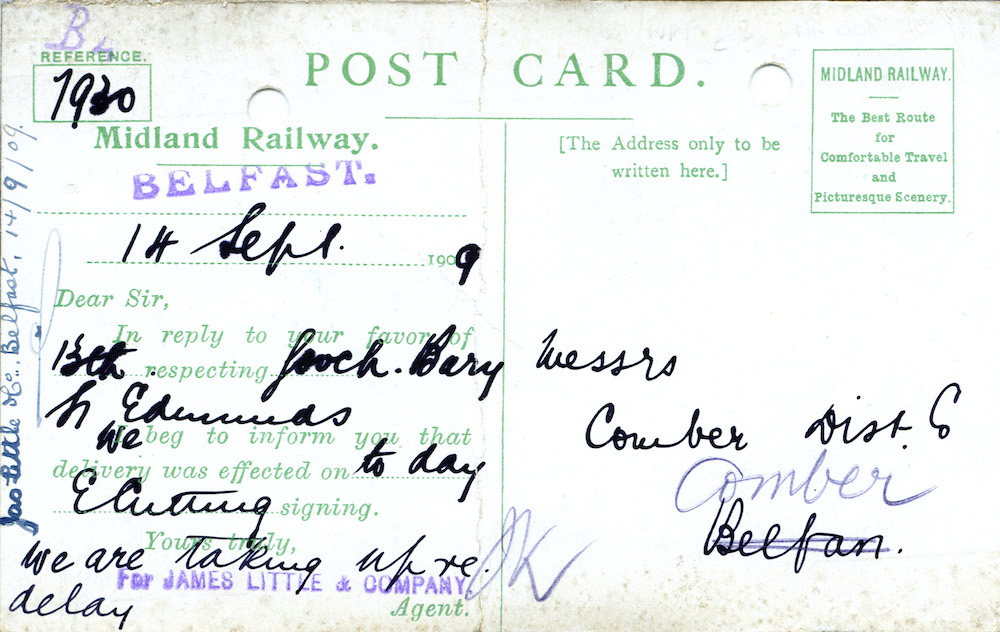 B
REFERENCE.
1930
POST CARD.
Midland Railway.
BELFAST.
14 Sept. 1909
Dear Sir,
In reply to your favor of
13th. respecting Gooch. Bury
St Edmunds
We beg to inform you that
delivery was effected on to day
E Cutting signing.
Yours truly,
we are taking up re.
For JAMES LITTLE & COMPANY,
delay
Agent.
Jas Little & Co. Belfast, 14/9/09.
[The Address only to be
written here.]
MIDLAND RAILWAY.
The Best Route
for
Comfortable Travel
and
Picturesque Scenery.
Messrs
Comber Dist. Co
Comber
Belfast.